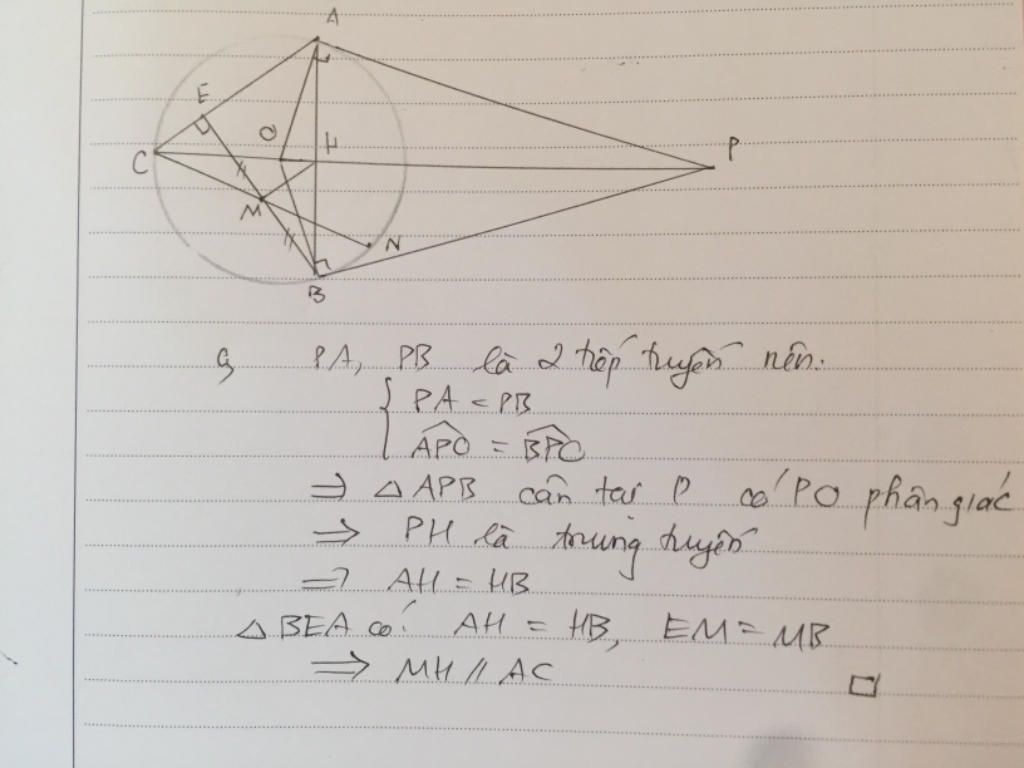 A
E
O
H
C
P
M
N
B
a, PA, PB là 2 tiếp tuyến nên:
{ PA = PB
APO = BPO
⇒ △ APB cân tại P có PO phân giác
⇒ PH là trung tuyến
⇒ AH = HB
△ BEA có: AH = HB, EM = MB
⇒ MH // AC □